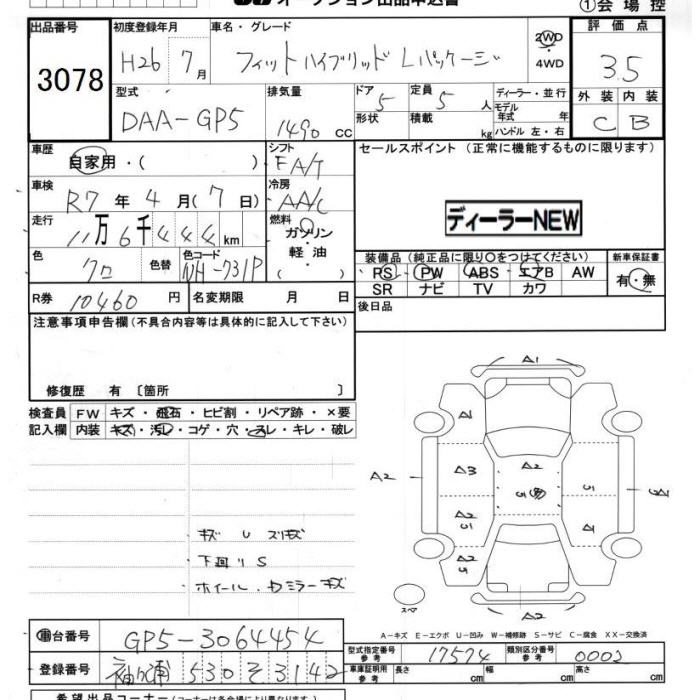 オークション出品申込書
①会場控
出品番号 3078
初度登録年月 H26年 7月
車名・グレード フィットハイブリッド Lパッケージ
2WD
4WD
評価点 3.5
外装 内装
C B
型式 DAA-GP5
排気量 1490 cc
ドア 5
形状
定員 5人
積載 kg
ディーラー・並行
モデル年式 年
ハンドル 左・右
車歴 自家用・( )
シフト FA/T
セールスポイント (正常に機能するものに限ります)
ディーラーNEW
車検 R7年 4月(7日)
冷房 AA/C
走行 11万6千444km
燃料 ガソリン・軽油
( )
色 クロ
色替
色コード NH-731P
装備品(純正品に限り○をつけてください)
新車保証書
PS PW ABS エアB AW
SR ナビ TV カワ
有・無
R券 10460円
名変期限 月 日
後日品
注意事項申告欄(不具合内容等は具体的に記入して下さい)
修復歴 有〔箇所 〕
検査員 FW キズ・飛石・ヒビ割・リペア跡・×要
記入欄 内装 キズ・汚レ・コゲ・穴・スレ・キレ・破レ
A1
A1
A2
A3
A2
A2
A2
S
A2
キズ U スリキズ
下回り S
ホイール・ドミラーキズ
スペ
A-キズ E-エクボ U-凹み W-補修跡 S-サビ C-腐食 XX-交換済
車台番号 GP5-3064454
登録番号 袖ヶ浦 530 そ 3142
型式指定番号 参考 17574
類別区分番号 参考 0002
車庫証明用 参考 長さ cm 幅 cm 高さ cm
希望出品コーナー(コーナーは各会場により異なります)